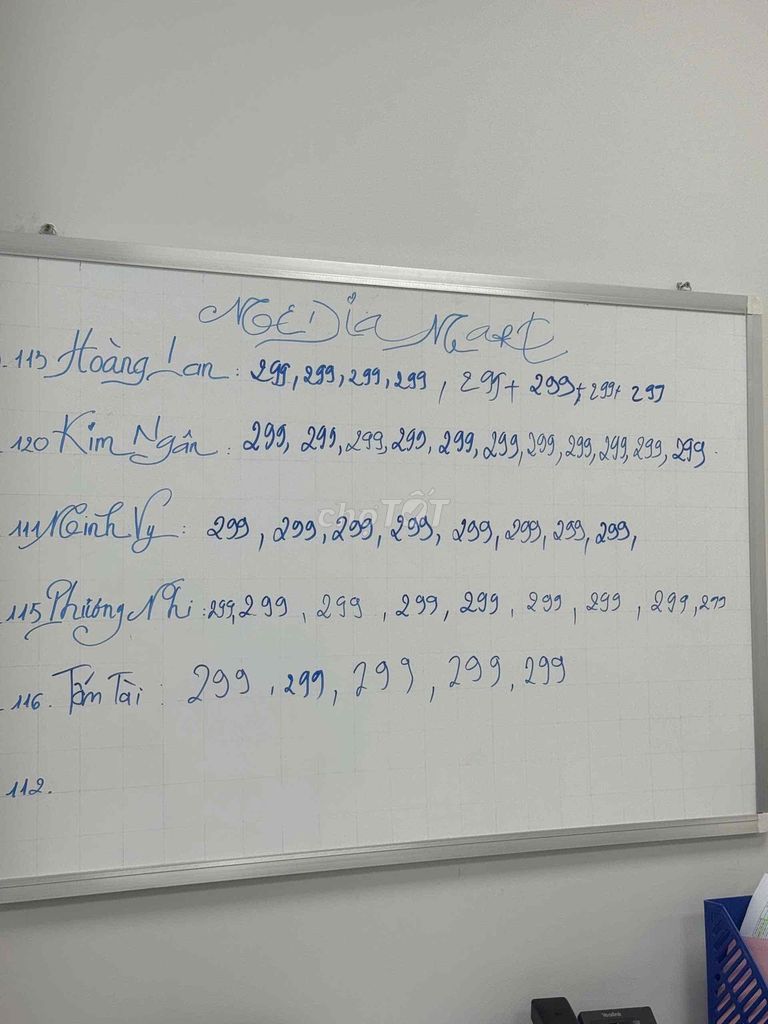 MEDia MaRt
113 Hoàng Lan : 299, 299, 299, 299, 299+ 299+ 299+ 299
120 Kim Ngân : 299, 299, 299, 299, 299, 299, 299, 299, 299, 299, 299.
111 Minh Vy : 299, 299, 299, 299, 299, 299, 299, 299,
chợTỐT
115 Phương Nhi : 299, 299, 299, 299, 299, 299, 299, 299, 299
116. Tấm Tài : 299, 299, 299, 299, 299
112.
Yealink